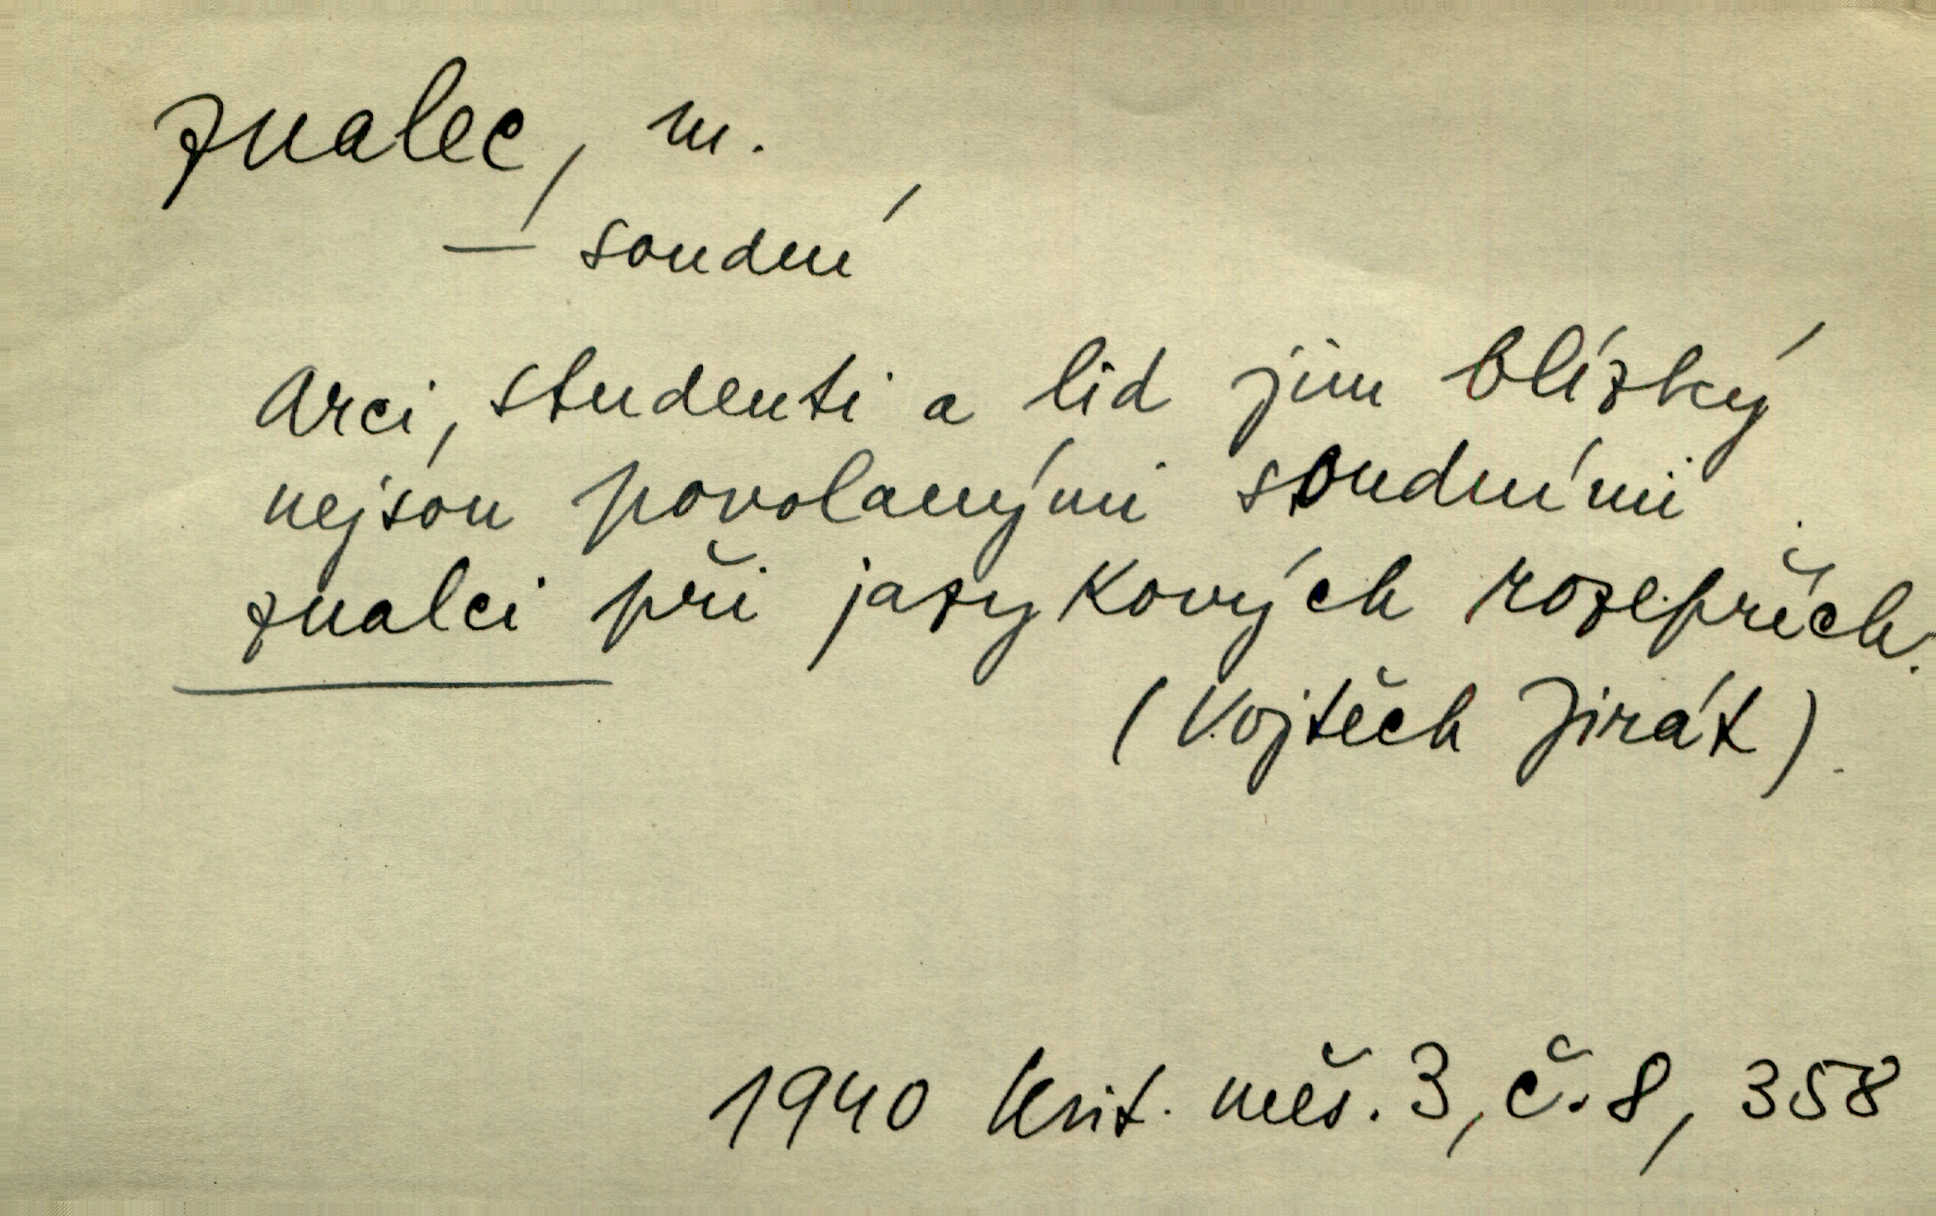 znalec, m.
— soudní
Arci, studenti a lid jim blízký
nejsou povolanými soudními
znalci při jazykových rozepřích.
(Vojtěch Jirát).
1940 Krit. měs. 3, č. 8, 358